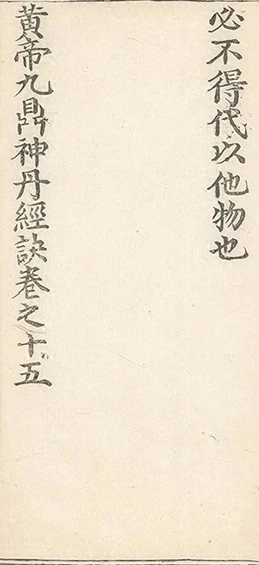 必不得代以他物也
黃帝九鼎神丹經訣卷之十五